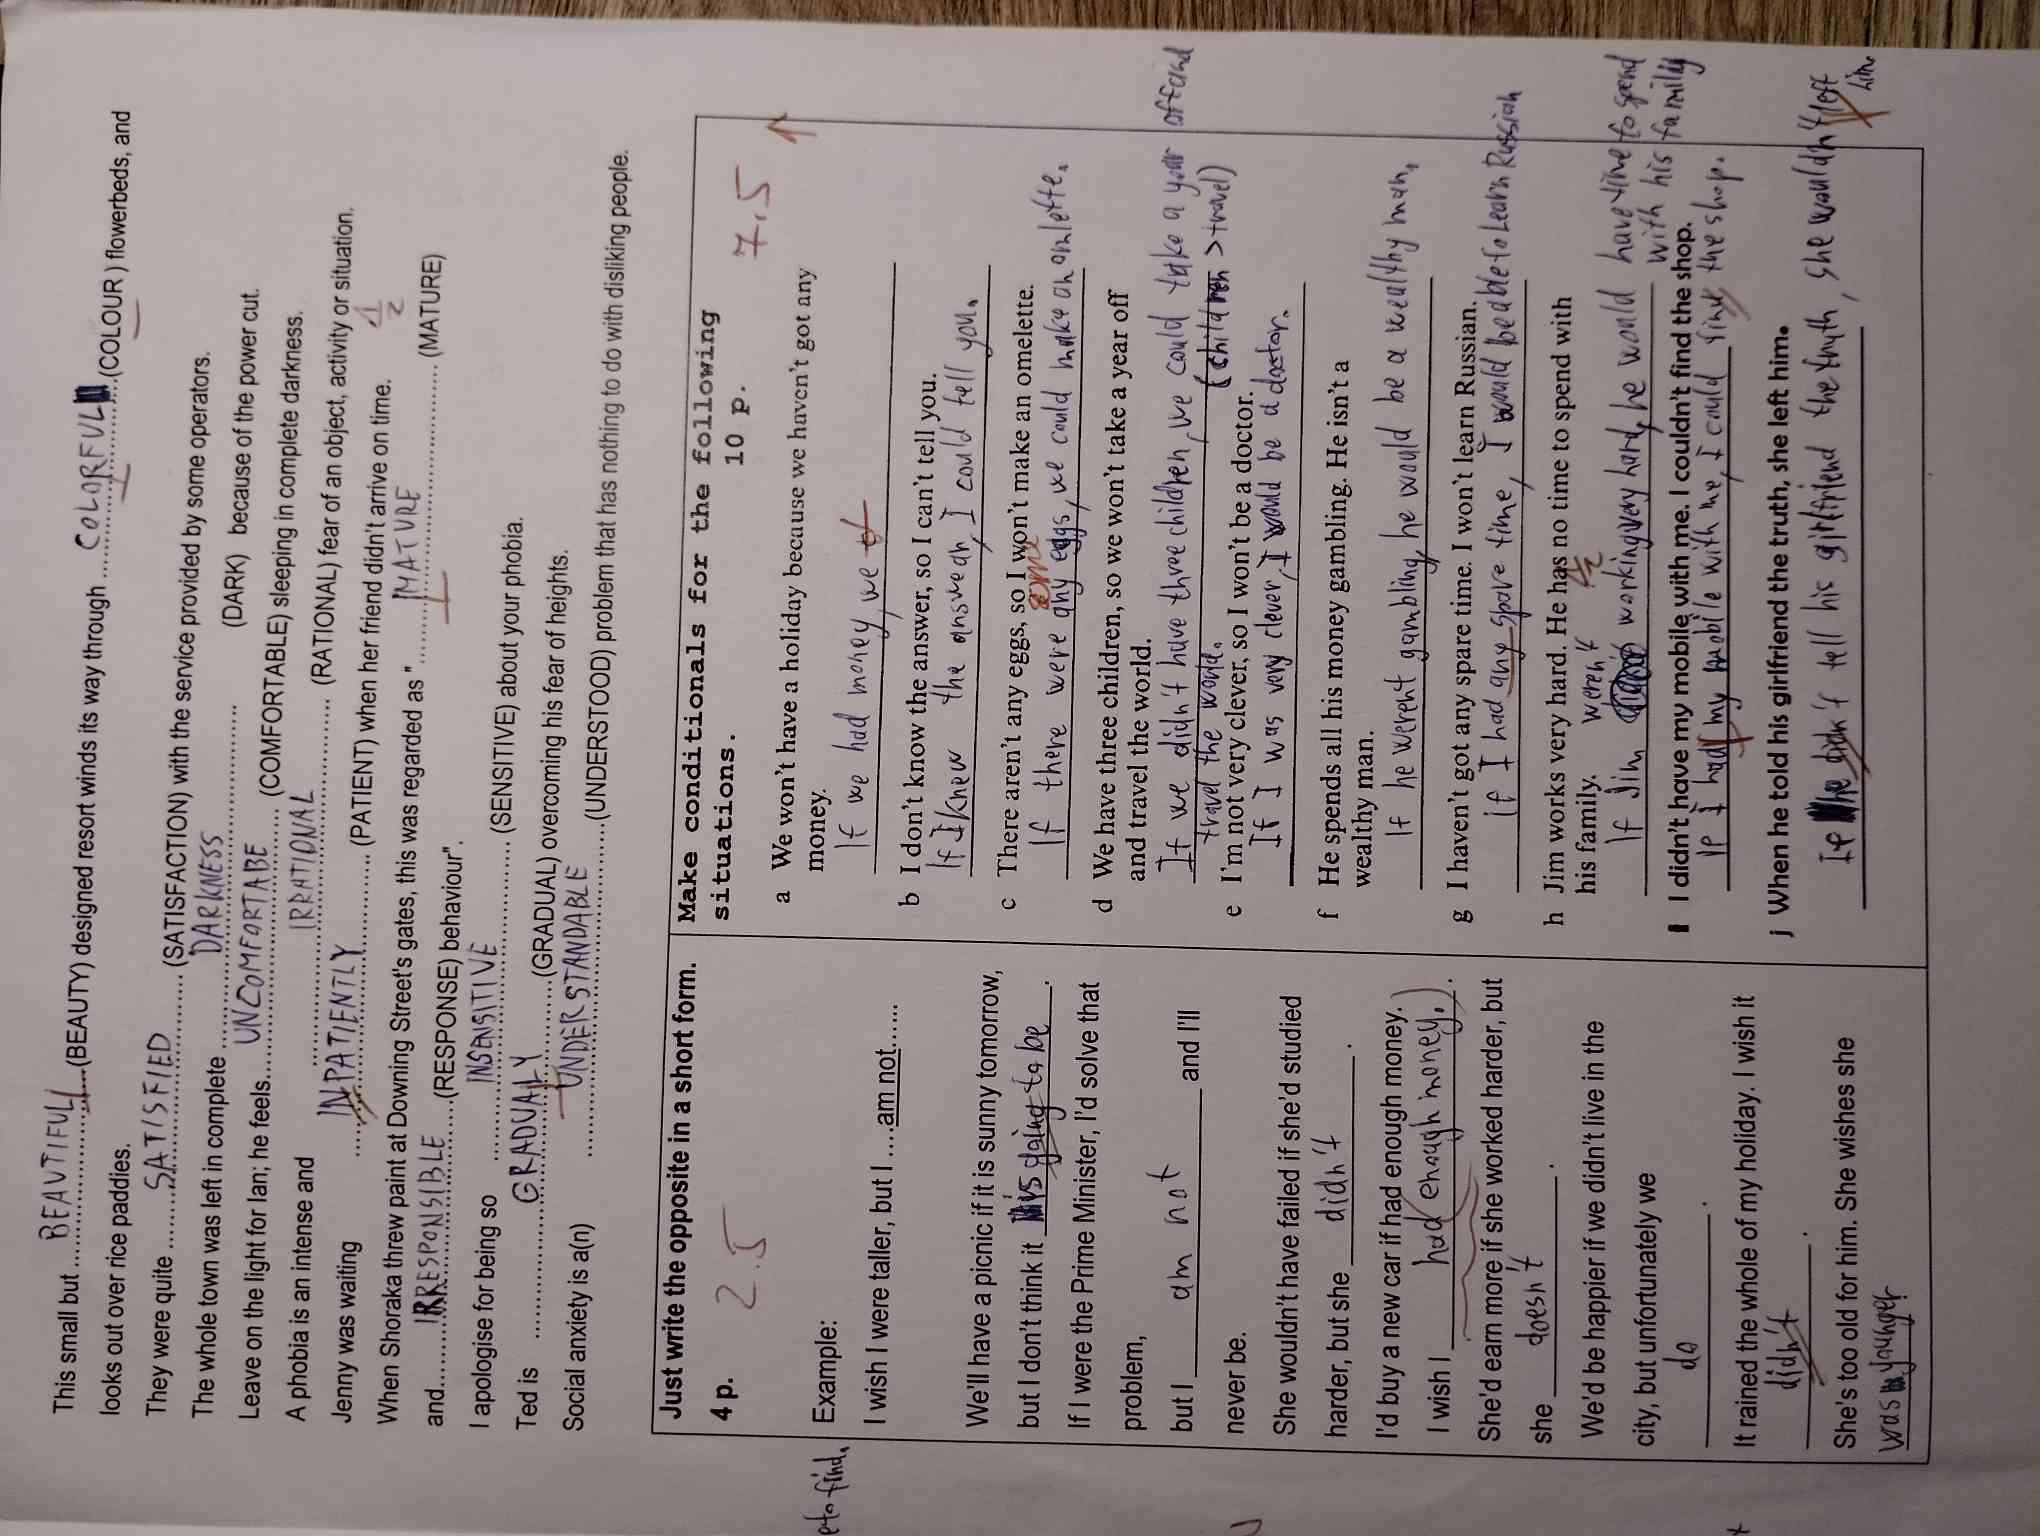 This small but ............BEAUTIFUL............(BEAUTY) designed resort winds its way through ............COLORFUL............(COLOUR ) flowerbeds, and
looks out over rice paddies.
They were quite ............SATISFIED............ (SATISFACTION) with the service provided by some operators.
The whole town was left in complete ............DARKNESS............ (DARK) because of the power cut.
Leave on the light for Ian; he feels............UNCOMFORTABE............ (COMFORTABLE) sleeping in complete darkness.
A phobia is an intense and ............IRRATIONAL............ (RATIONAL) fear of an object, activity or situation.
Jenny was waiting ............INPATIENTLY............ (PATIENT) when her friend didn't arrive on time. 1/2
When Shoraka threw paint at Downing Street's gates, this was regarded as "............IMATURE............ (MATURE)
and............IRRESPONSIBLE............(RESPONSE) behaviour".
I apologise for being so ............INSENSITIVE............ (SENSITIVE) about your phobia.
Ted is ............GRADUALY............(GRADUAL) overcoming his fear of heights.
Social anxiety is a(n) ............UNDERSTANDABLE............(UNDERSTOOD) problem that has nothing to do with disliking people.
Just write the opposite in a short form.
4 p. 2.5
e to find.
Example:
I wish I were taller, but I ....am not......
We'll have a picnic if it is sunny tomorrow,
but I don't think it is going to be.
If I were the Prime Minister, I'd solve that
problem,
but I am not and I'll
never be.
She wouldn't have failed if she'd studied
harder, but she didn't.
I'd buy a new car if had enough money.
I wish I had (enough money.).
She'd earn more if she worked harder, but
she doesn't.
We'd be happier if we didn't live in the
city, but unfortunately we
do.
It rained the whole of my holiday. I wish it
didn't.
She's too old for him. She wishes she
was younger
Make conditionals for the following
situations. 10 p. 7.5
a We won't have a holiday because we haven't got any
money.
If we had money, we
b I don't know the answer, so I can't tell you.
If I knew the answear, I could tell you.
c There aren't any eggs, so I won't make an omelette.
some
If there were any eggs, we could make an omlette.
d We have three children, so we won't take a year off
and travel the world.
If we didn't have three children, we could take a year off and
travel the world. (children > travel)
e I'm not very clever, so I won't be a doctor.
If I was very clever, I would be a doctor.
f He spends all his money gambling. He isn't a
wealthy man.
If he weren't gambling, he would be a wealthy man.
g I haven't got any spare time. I won't learn Russian.
if I had any spare time, I would be able to Learn Russian
h Jim works very hard. He has no time to spend with
his family. weren't 1/2
If Jim working very hard, he would have time to spend
with his family
I didn't have my mobile with me. I couldn't find the shop.
If I had my mobile with me, I could find the shop.
j When he told his girlfriend the truth, she left him.
If he didn't tell his girlfriend the truth, she wouldn't left
him